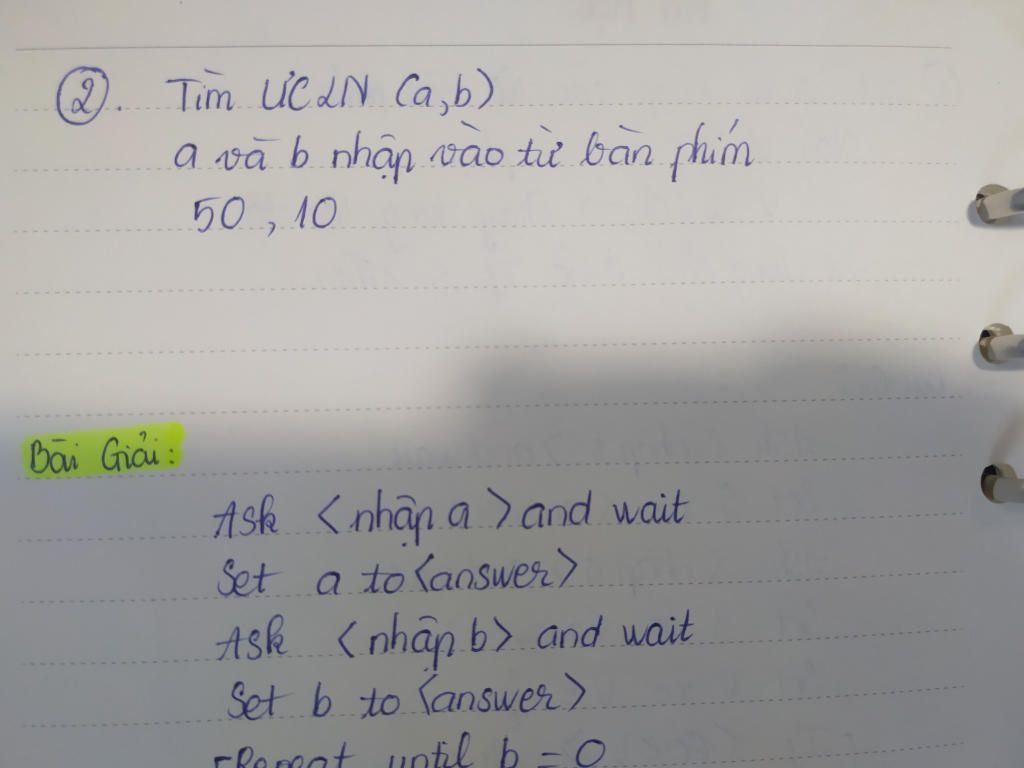 ②. Tìm ƯCLN (a,b)
a và b nhập vào từ bàn phím
50 , 10
Bài Giải:
Ask <nhập a> and wait
Set a to <answer>
Ask <nhập b> and wait
Set b to <answer>
Repeat until b = 0